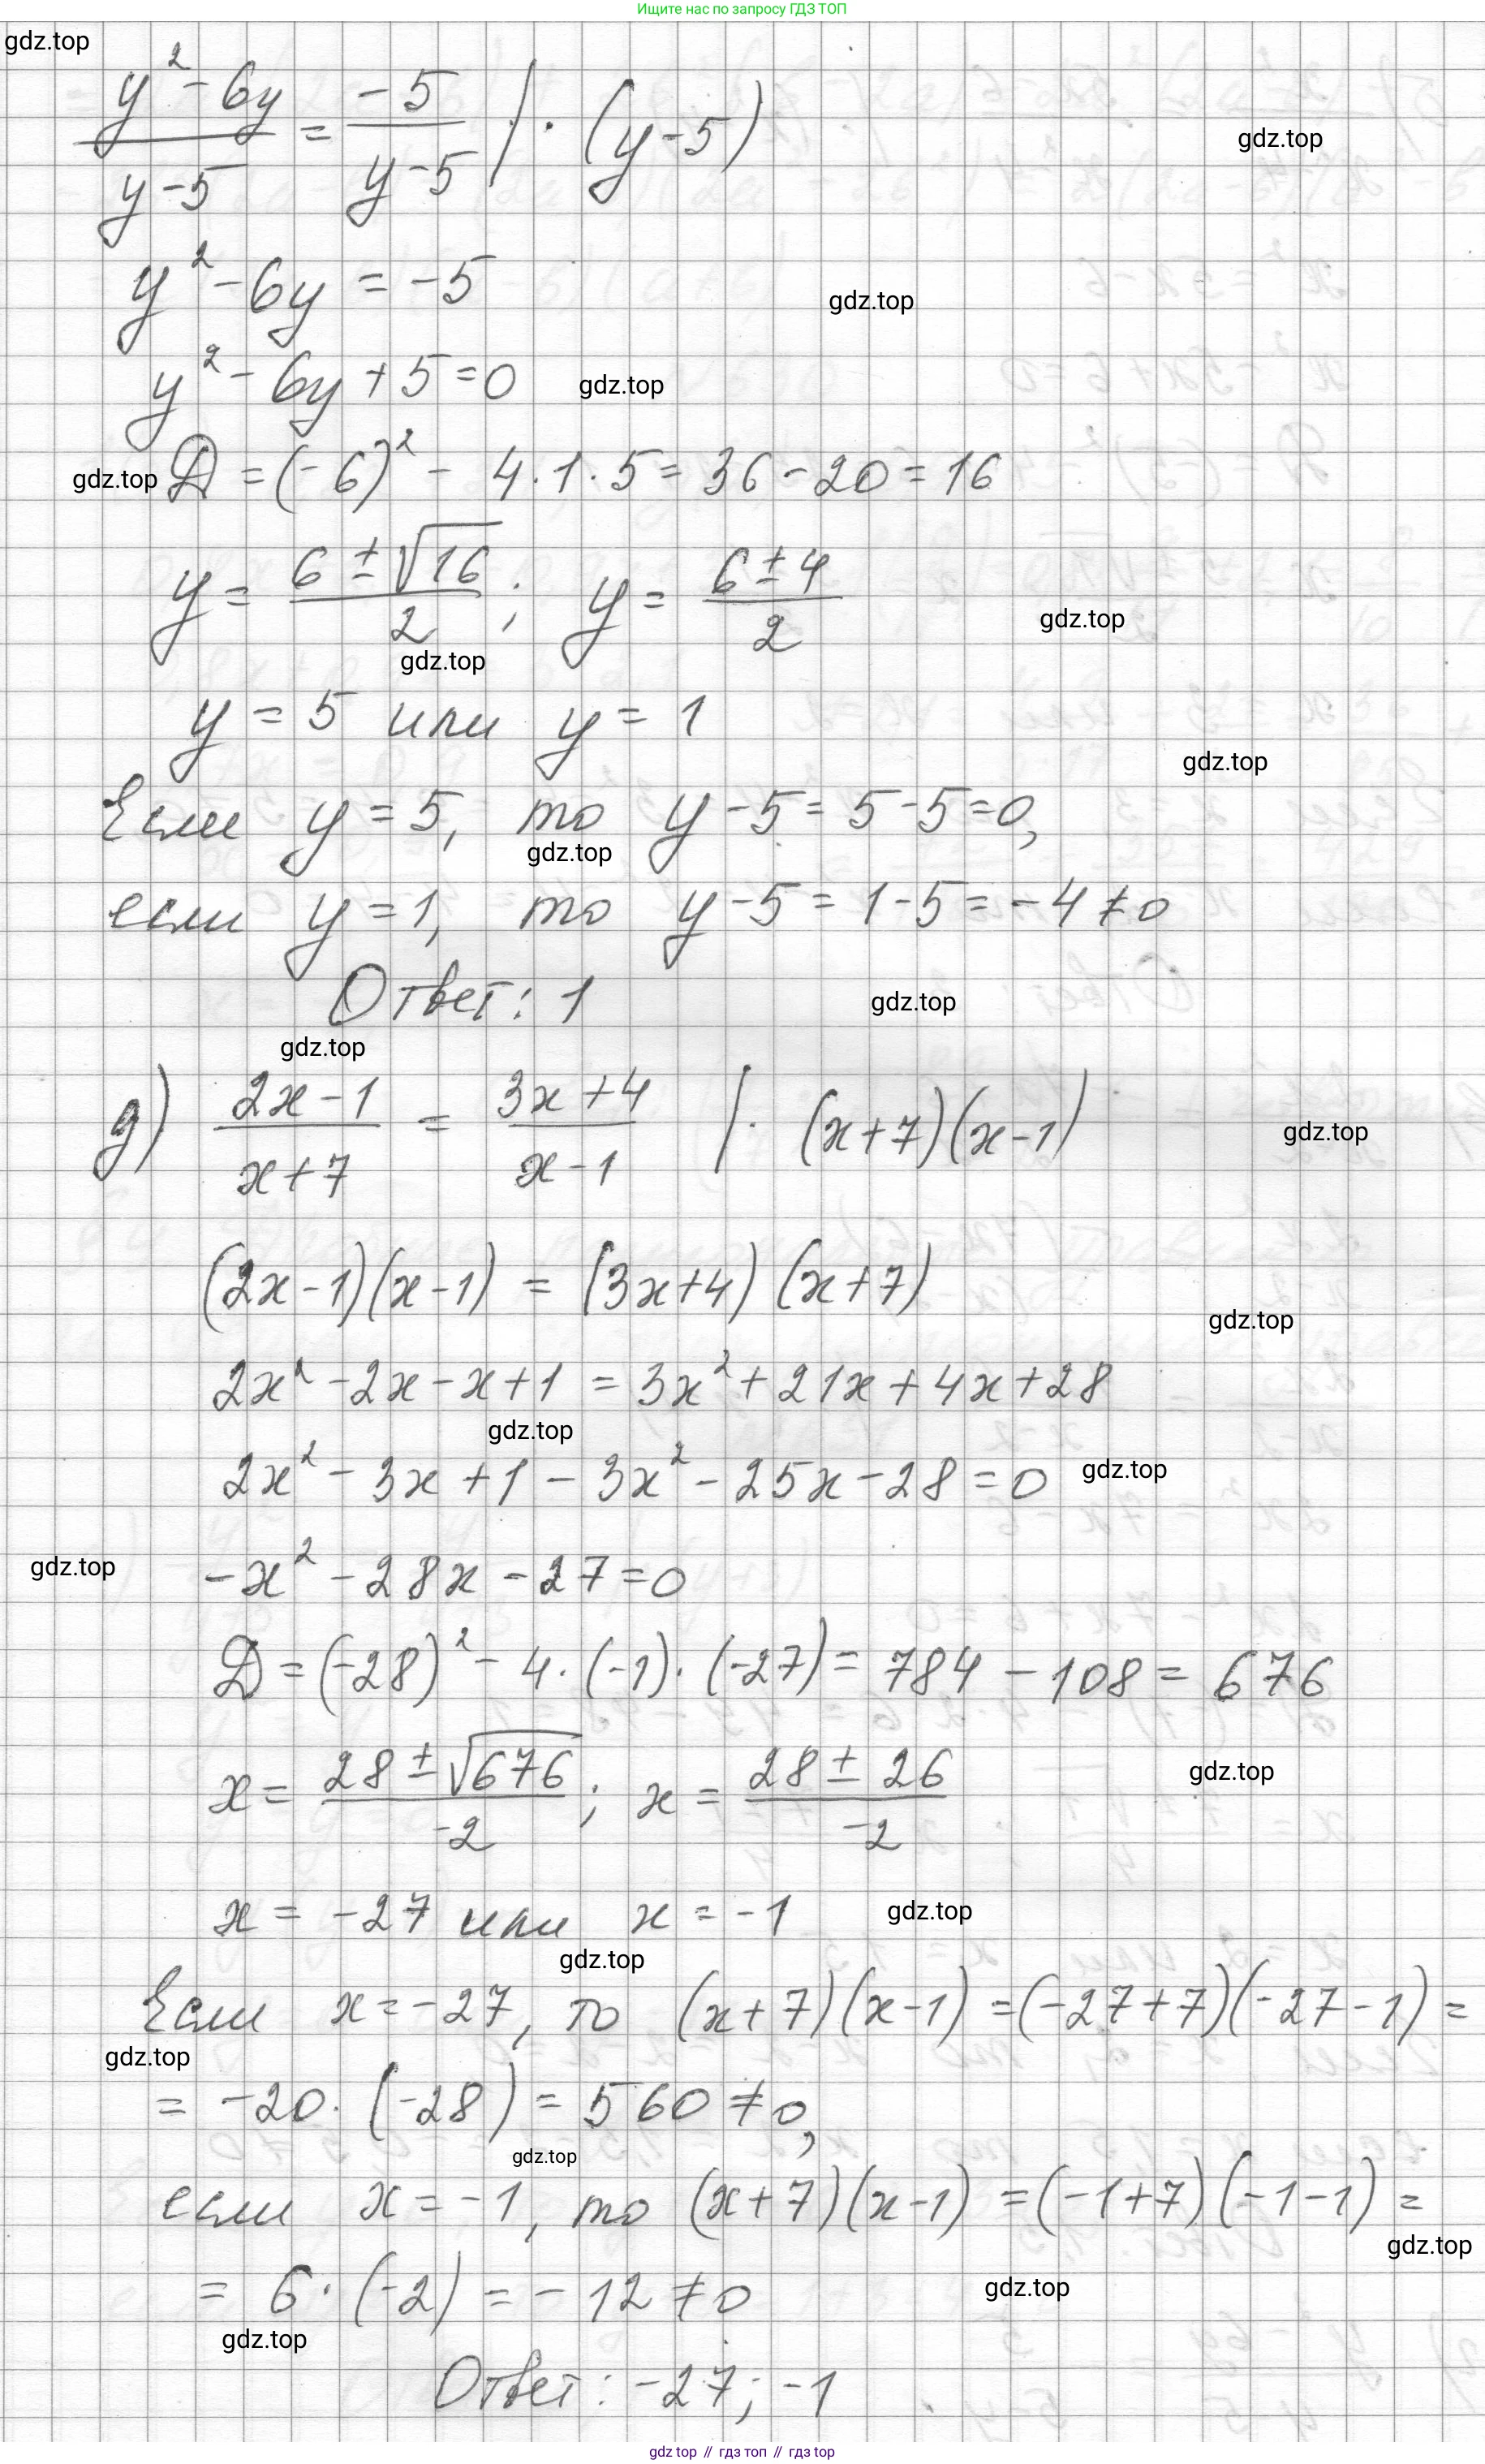 Ищите нас по запросу ГДЗ ТОП
gdz.top
(y² - 6y)/(y - 5) = (-5)/(y - 5) | · (y - 5)
gdz.top
y² - 6y = -5
gdz.top
y² - 6y + 5 = 0
gdz.top
gdz.top
D = (-6)² - 4 · 1 · 5 = 36 - 20 = 16
y = (6 ± √16)/2 ; y = (6 ± 4)/2
gdz.top
gdz.top
y = 5 или y = 1
gdz.top
Если y = 5, то y - 5 = 5 - 5 = 0,
gdz.top
если y = 1, то y - 5 = 1 - 5 = -4 ≠ 0
Ответ: 1
gdz.top
gdz.top
д) (2x - 1)/(x + 7) = (3x + 4)/(x - 1) | · (x + 7)(x - 1)
gdz.top
(2x - 1)(x - 1) = (3x + 4)(x + 7)
gdz.top
2x² - 2x - x + 1 = 3x² + 21x + 4x + 28
gdz.top
2x² - 3x + 1 - 3x² - 25x - 28 = 0
gdz.top
gdz.top
-x² - 28x - 27 = 0
D = (-28)² - 4 · (-1) · (-27) = 784 - 108 = 676
x = (28 ± √676)/-2 ; x = (28 ± 26)/-2
gdz.top
x = -27 или x = -1
gdz.top
gdz.top
Если x = -27, то (x + 7)(x - 1) = (-27 + 7)(-27 - 1) =
gdz.top
= -20 · (-28) = 560 ≠ 0,
gdz.top
если x = -1, то (x + 7)(x - 1) = (-1 + 7)(-1 - 1) =
gdz.top
= 6 · (-2) = -12 ≠ 0
gdz.top
gdz.top
Ответ: -27; -1
gdz top // гдз топ // гдз top